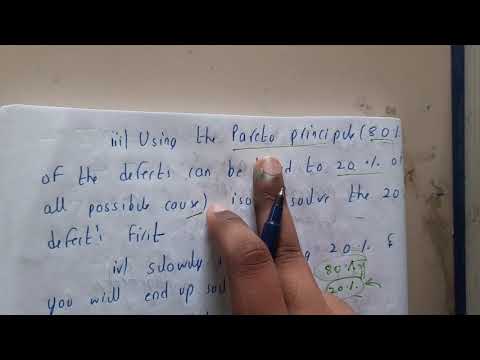 iii) Using the Pareto principle (80%
of the defects can be to 20% of
all possible cause) solve the 20
defect's first
iv) slowly 20%
you will end up
80%
20%